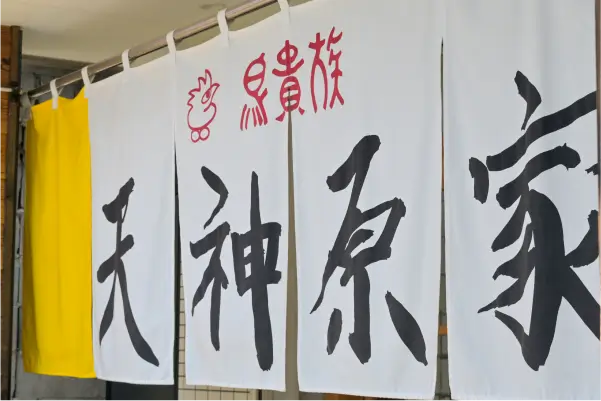 鳥貴族
天神原家